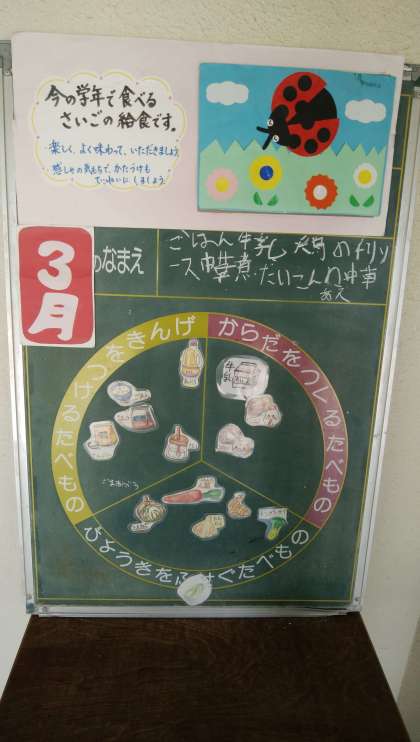 今の学年で食べる
さいごの給食です。
・楽しく、よく味わって、いただきましょう。
・感しゃの気もちで、かたづけも
ていねいにしましょう。
3月
のなまえ
ごはん 牛乳
ース 中華煮 だいこんの中華
あえ
をきんげ
つけるたべもの
からだをつくるたべもの
牛乳
びょうきをふせぐたべもの